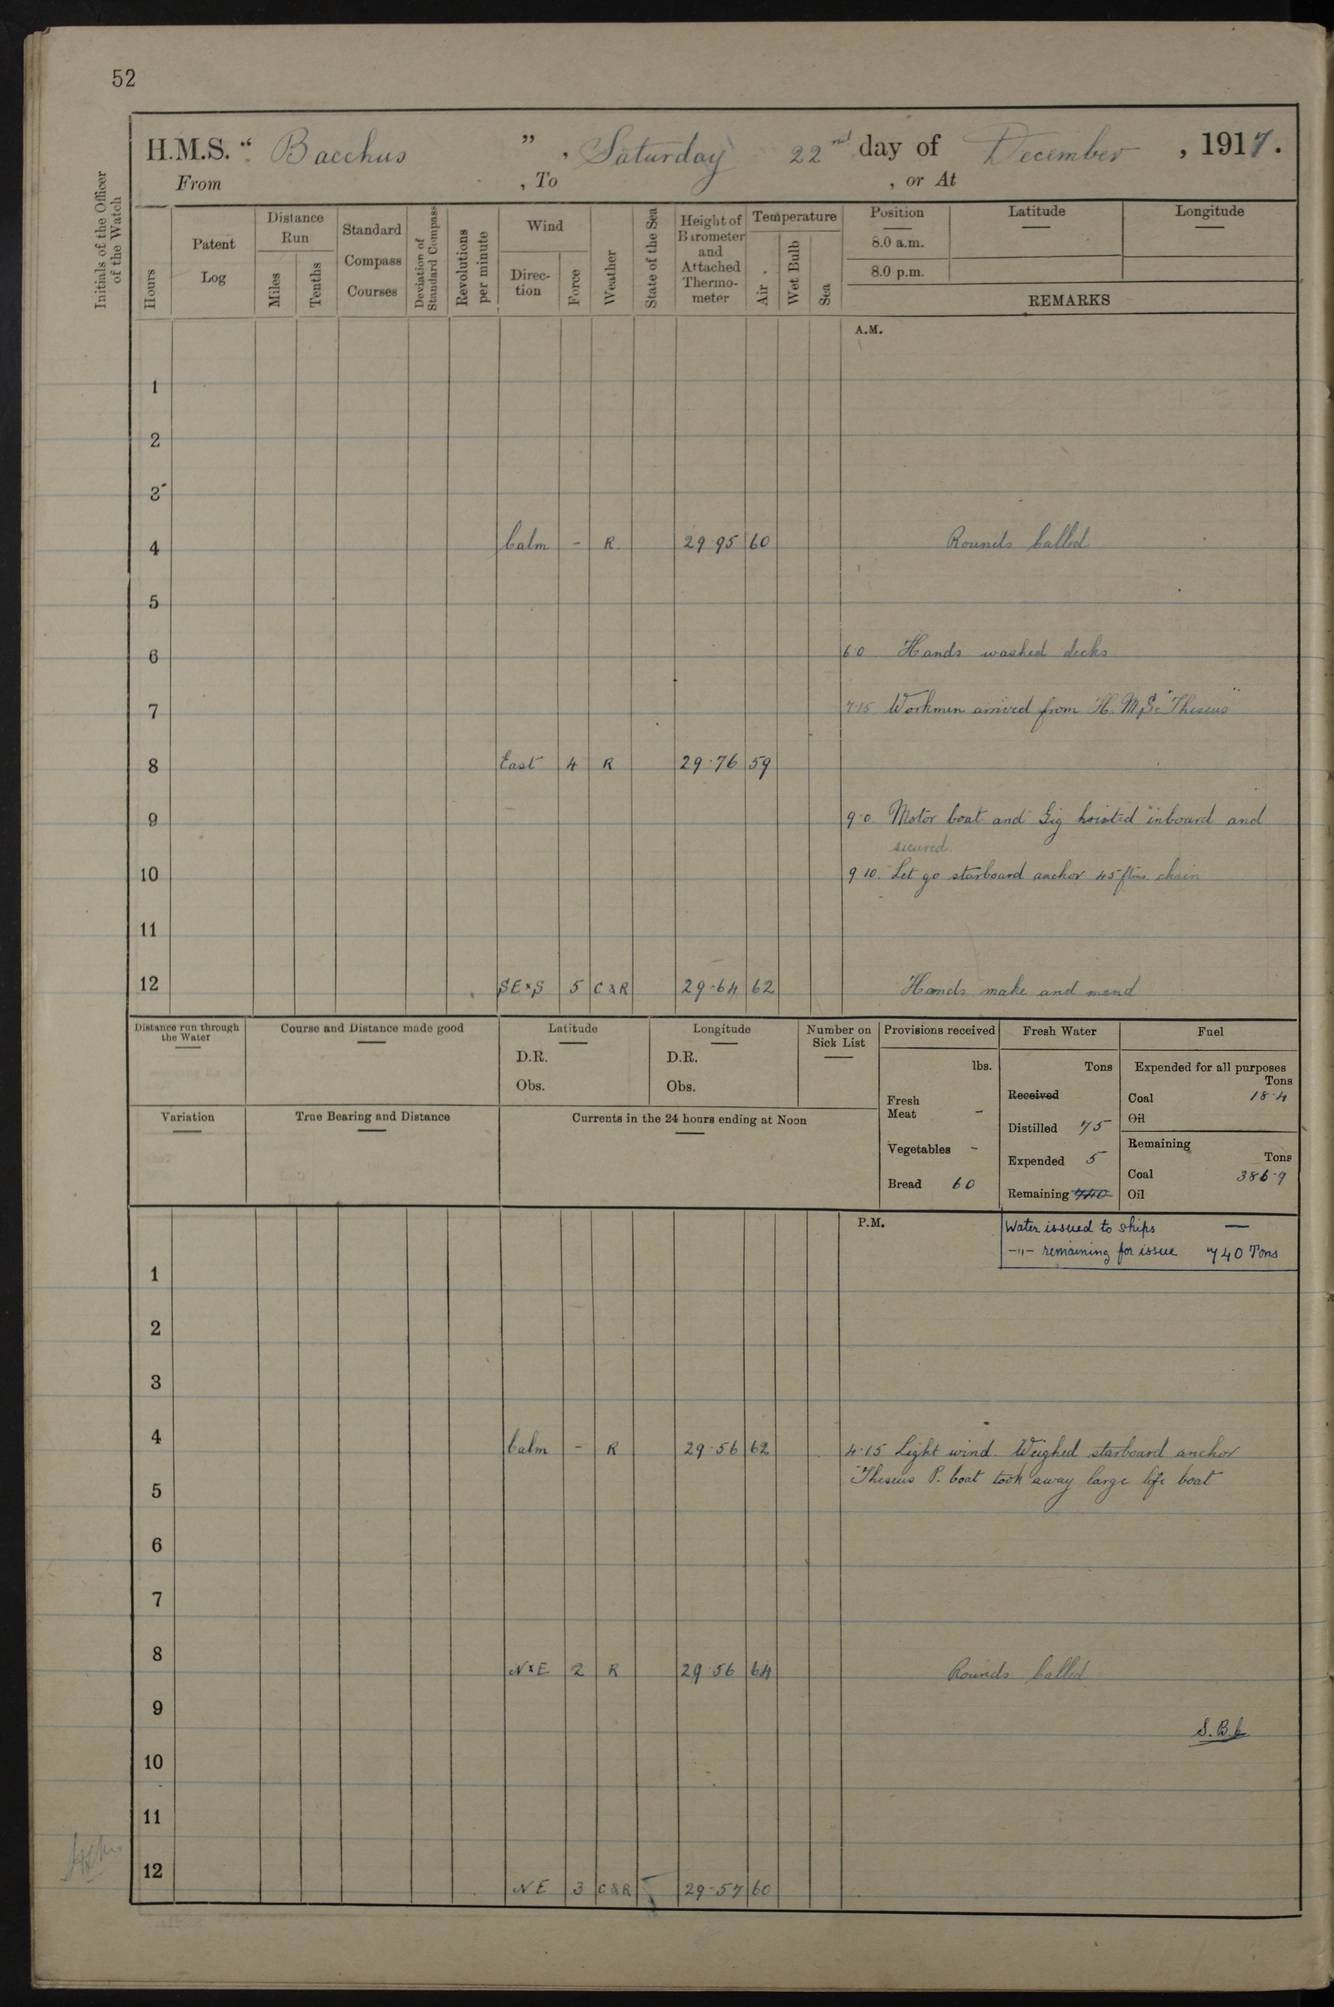 52
H.M.S. “ Bacchus ” , Saturday 22nd day of December , 1917.
From , To , or At
Initials of the Officer of the Watch
Hours
Patent Log
Distance Run
Miles
Tenths
Standard Compass Courses
Deviation of Standard Compass
Revolutions per minute
Wind
Direc-tion
Force
Weather
State of the Sea
Height of Barometer and Attached Thermo-meter
Temperature
Air
Wet Bulb
Sea
Position Latitude Longitude
8.0 a.m.
8.0 p.m.
REMARKS
A.M.
1
2
3
4 Calm - R 29·95 60 Rounds Called
5
6 6·0 Hands washed decks
7 7·15 Workmen arrived from H.M.S. "Theseus"
8 East 4 R 29·76 59
9 9·0 Motor boat and Gig hoisted inboard and
secured.
10 9·10. Let go starboard anchor 45 fms chain
11
12 SE×S 5 C&R 29·64 62 Hands make and mend
Distance run through the Water
Course and Distance made good
Latitude
D.R.
Obs.
Longitude
D.R.
Obs.
Number on Sick List
Provisions received
lbs.
Fresh Meat -
Vegetables -
Bread 60
Fresh Water
Tons
Received
Distilled 75
Expended 5
Remaining 740
Fuel
Expended for all purposes
Tons
Coal 18·4
Oil
Remaining
Tons
Coal 386·9
Oil
Variation
True Bearing and Distance
Currents in the 24 hours ending at Noon
P.M.
Water issued to ships —
-"- remaining for issue 740 Tons
1
2
3
4 Calm - R 29·56 62 4·15 Light wind. Weighed starboard anchor
Theseus P. boat took away large life boat
5
6
7
8 N×E 2 R 29·56 64 Rounds Called
9
S.B.
10
11
12 NE 3 C&R 29·57 60